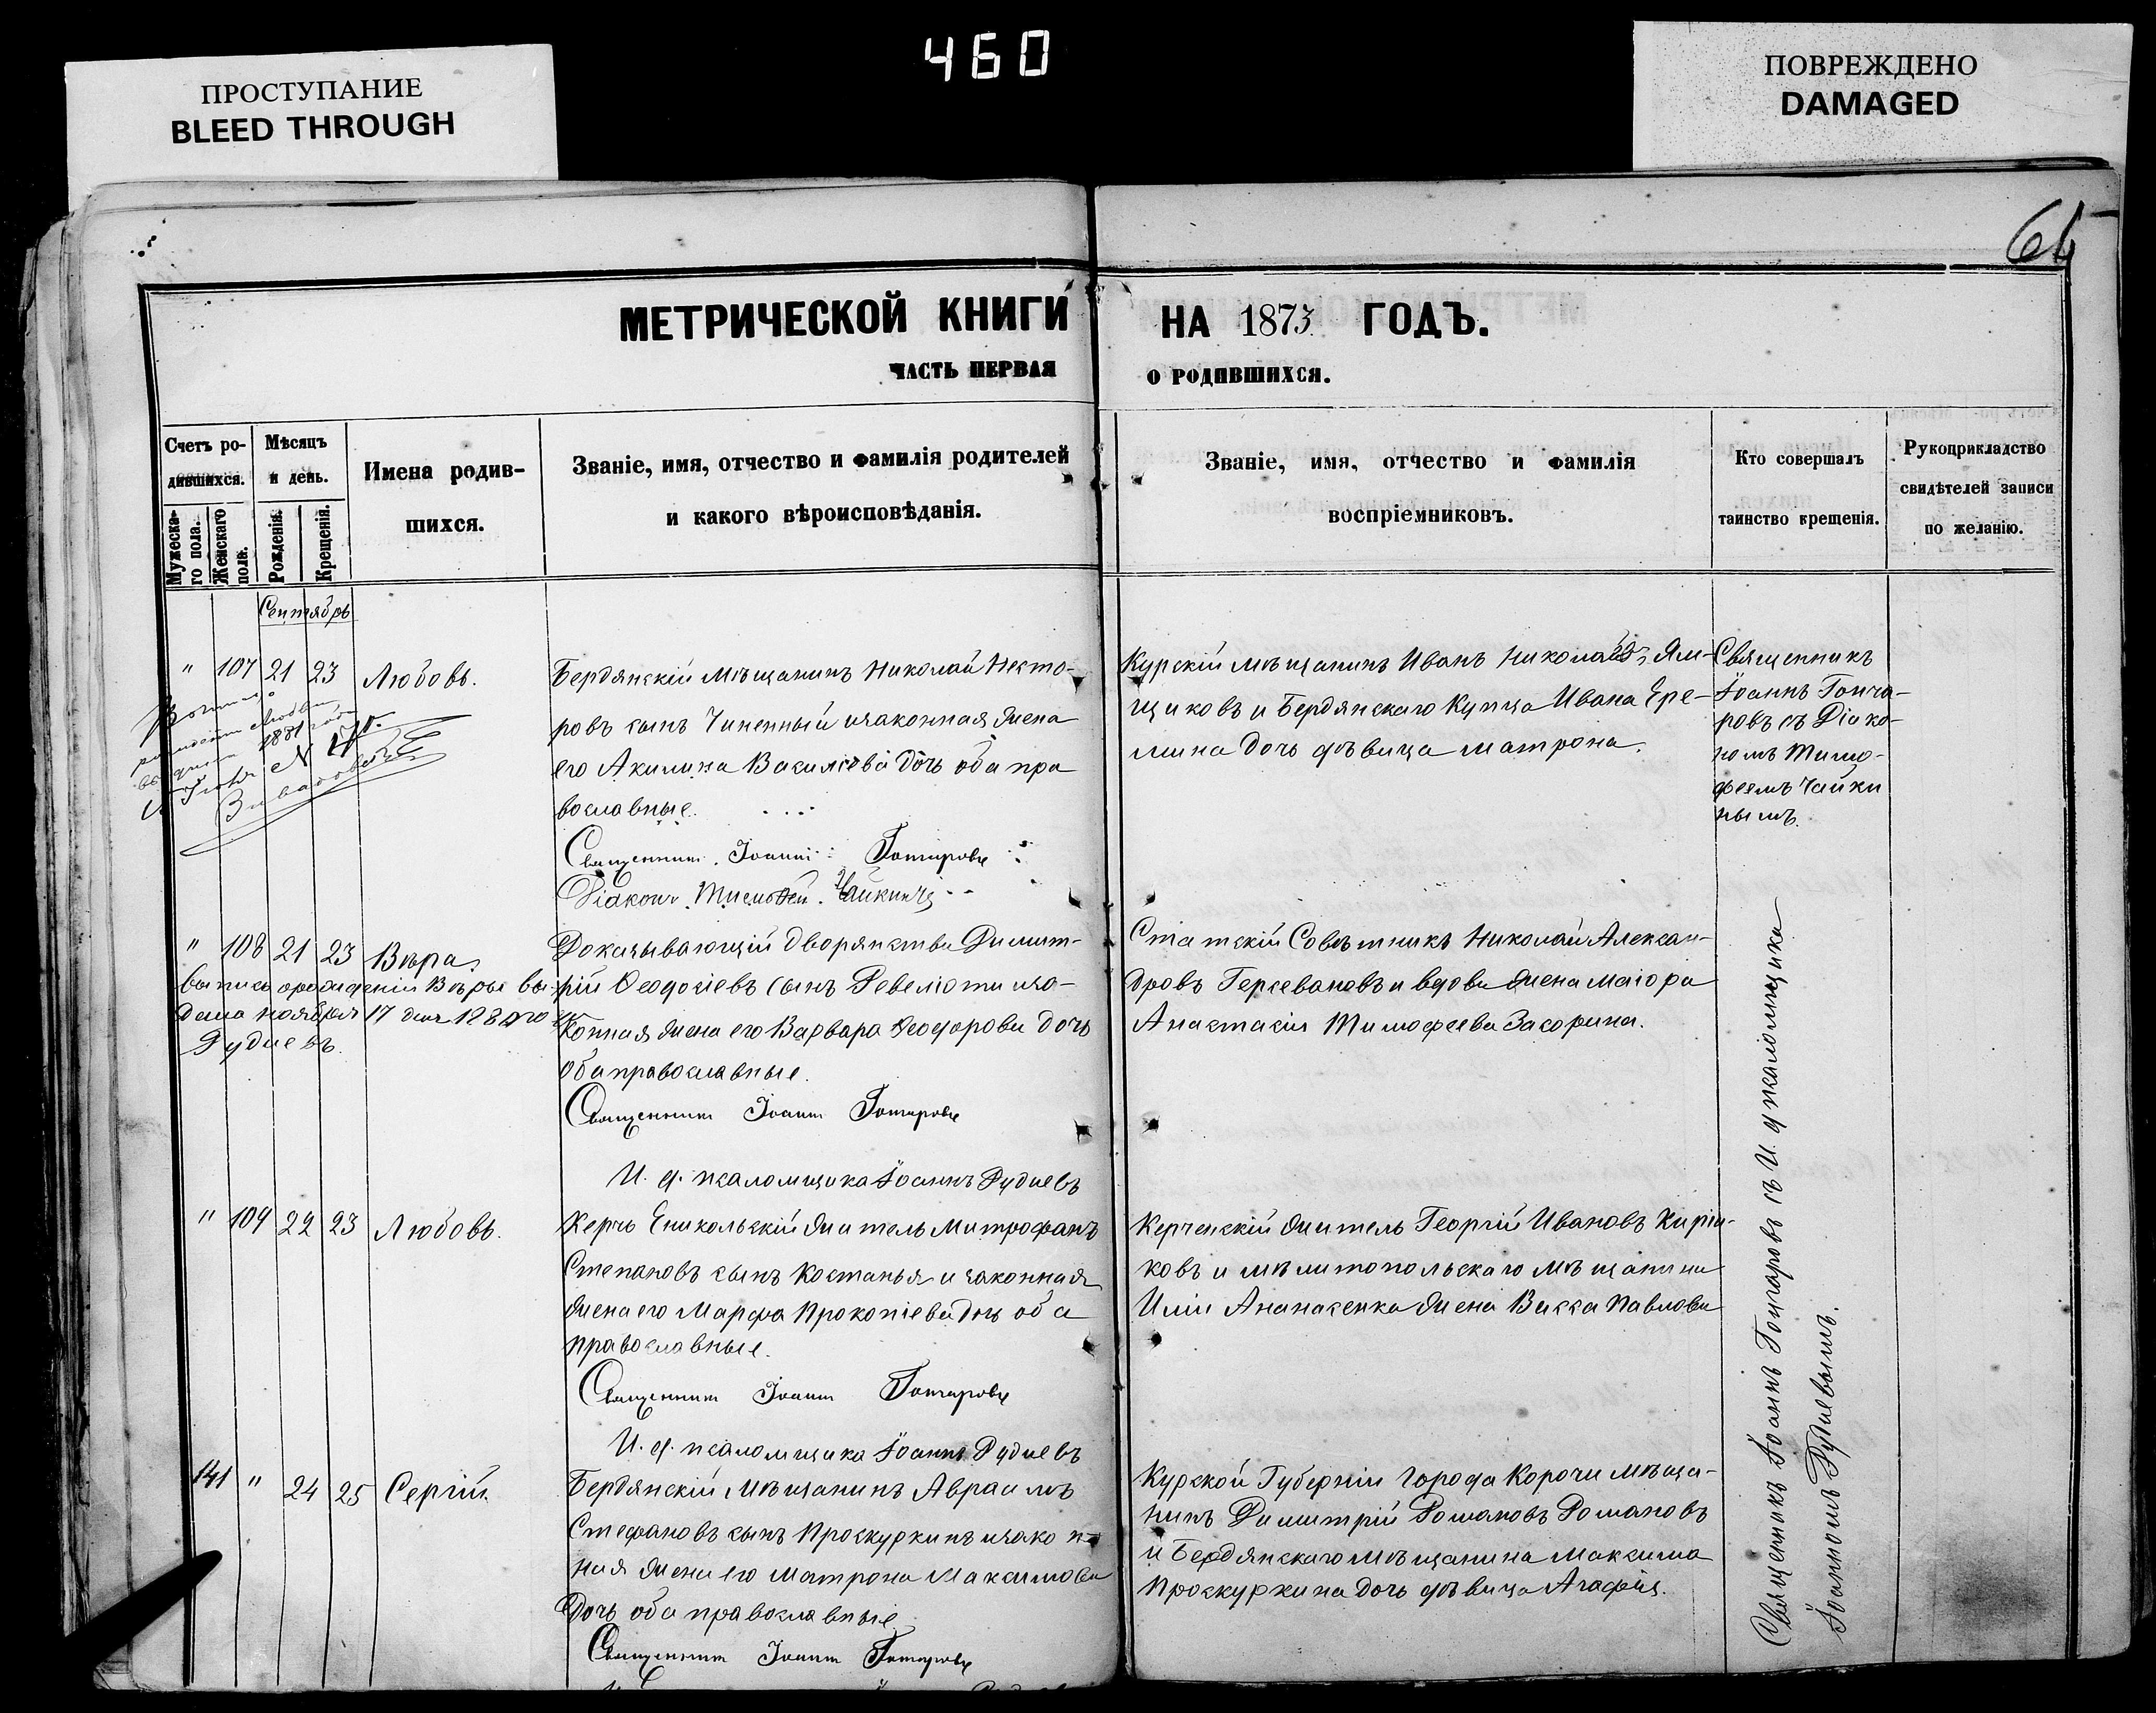 460
ПРОСТУПАНИЕ
BLEED THROUGH
ПОВРЕЖДЕНО
DAMAGED
МЕТРИЧЕСКОЙ КНИГИ НА 1873 ГОДЪ.
ЧАСТЬ ПЕРВАЯ О РОДИВШИХСЯ.
Счетъ ро-
дившихся.
Мужеска-
го пола.
Женскаго
пола.
Мѣсяцъ
и день.
Рожденія.
Крещенія.
Имена родив-
шихся.
Званіе, имя, отчество и фамилія родителей
и какого вѣроисповѣданія.
Званіе, имя, отчество и фамилія
воспріемниковъ.
Кто совершалъ
таинство крещенія.
Рукоприкладство
свидѣтелей записи
по желанію.
Сентябрь
" 107 21 23 Любовь.
1881 года
Бердянскій Мѣщанинъ Николай Несто-
ровъ сынъ Чиненный и законная жена
его Акилина Василіева дочь оба пра
вославные.
Священникъ Іоаннъ Гончаровъ
Діаконъ Тимофей Чайкинъ
Курскій мѣщанинъ Иванъ Николаевъ Ям-
щиковъ и Бердянскаго Купца Ивана Ере-
мина дочь дѣвица Матрона.
Священникъ
Іоаннъ Гонча-
ровъ съ Діако-
номъ Тимо-
феемъ Чайки
нымъ.
" 108 21 23 Вѣра.
Выпись о рожденіи Вѣры вы-
дана ноября 17 дня 188
Рудневъ.
Доказывающій дворянство Димит-
рій Ѳеодосіевъ сынъ Ревеліоти и за-
конная жена его Варвара Ѳеодорова дочь
оба православные.
Священникъ Іоаннъ Гончаровъ
И. д. псаломщика Іоаннъ Рудневъ
Статскій Совѣтникъ Николай Алексан-
дровъ Герсевановъ и вдова жена Маіора
Анастасія Тимофеева Засорина.
" 109 22 23 Любовь.
Керчь Еникольскій житель Митрофанъ
Степановъ сынъ Костанья и законная
жена его Марфа Прокопіева дочь оба
православные.
Священникъ Іоаннъ Гончаровъ
И. д. псаломщика Іоаннъ Рудневъ
Керченскій житель Георгій Ивановъ Киріа-
ковъ и мѣлитопольскаго мѣщанина
Иліи Ананасенка жена Васса Павлова
141 " 24 25 Сергій.
Бердянскій Мѣщанинъ Авраамъ
Стефановъ сынъ Проскуркинъ и закон-
ная жена его Матрона Максимова
дочь оба православные.
Священникъ Іоаннъ Гончаровъ
Курской Губерніи города Корочи мѣща-
нинъ Димитрій Романовъ Романовъ
и Бердянскаго Мѣщанина Максима
Проскуркина дочь дѣвица Агафія.
Священникъ Іоаннъ Гончаровъ съ И. д псаломщика
Іоанномъ Рудневымъ.